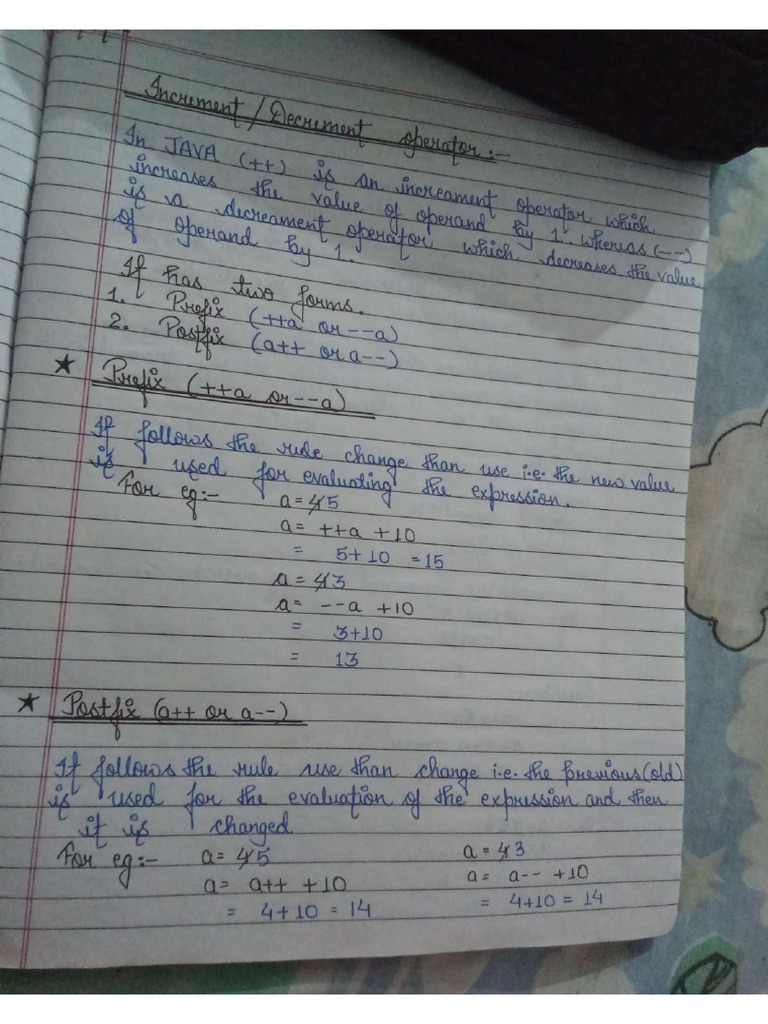 Increment/Decrement operator:-
In JAVA (++) is an increament operator which
increases the value of operand by 1. whereas (--)
is a decreament operator which decreases the value
of operand by 1.
It has two forms.
1. Prefix (++a or --a)
2. Postfix (a++ or a--)
★ Prefix (++a or --a)
It follows the rule change than use i.e. the new value
is used for evaluating the expression.
For eg:- a = 4 5
a = ++a +10
= 5+10 = 15
a = 4 3
a = --a +10
= 3+10
= 13
★ Postfix (a++ or a--)
It follows the rule use than change i.e. the previous (old)
is used for the evaluation of the expression and then
it is changed
For eg:- a = 4 5 a = 4 3
a = a++ +10 a = a-- +10
= 4+10 = 14 = 4+10 = 14